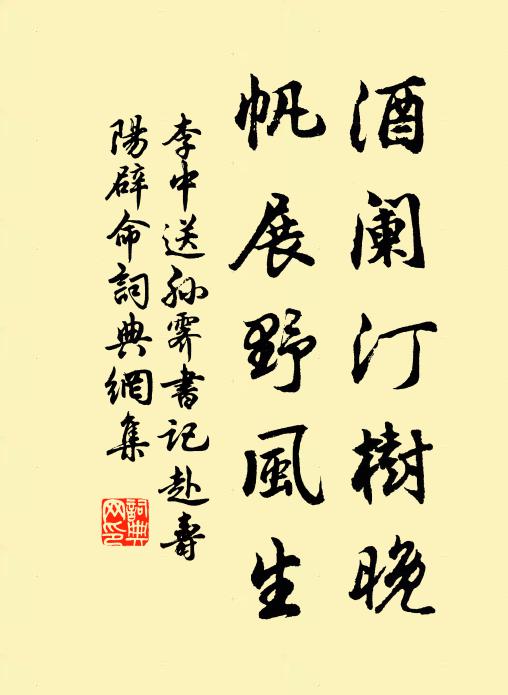 酒阑汀樹晚
帆展野風生
李中送孙霁書记赴壽
陽辟命詞典網集
詞典
网印